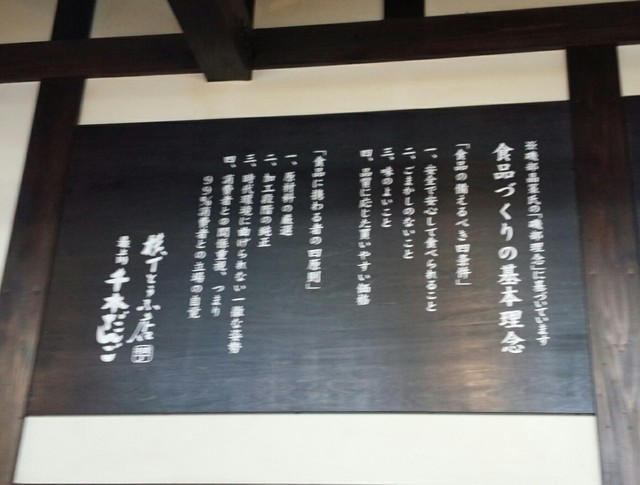 ※磯部晶策氏の「磯部理念」に基づいています
食品づくりの基本理念
「食品の備えるべき四条件」
一、安全で安心して食べられること
二、ごまかしのないこと
三、味のよいこと
四、品質に応じた買いやすい価格
「食品に携わる者の四原則」
一、原材料の厳選
二、加工段階の純正
三、時代環境に曲げられない一徹な姿勢
四、消費者との関係重視、つまり
99%消費者との立場の自覚
横丁とうふ店
最上川千本だんご